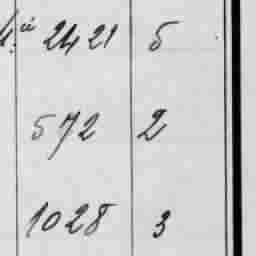 2421 5
572 2
1028 3